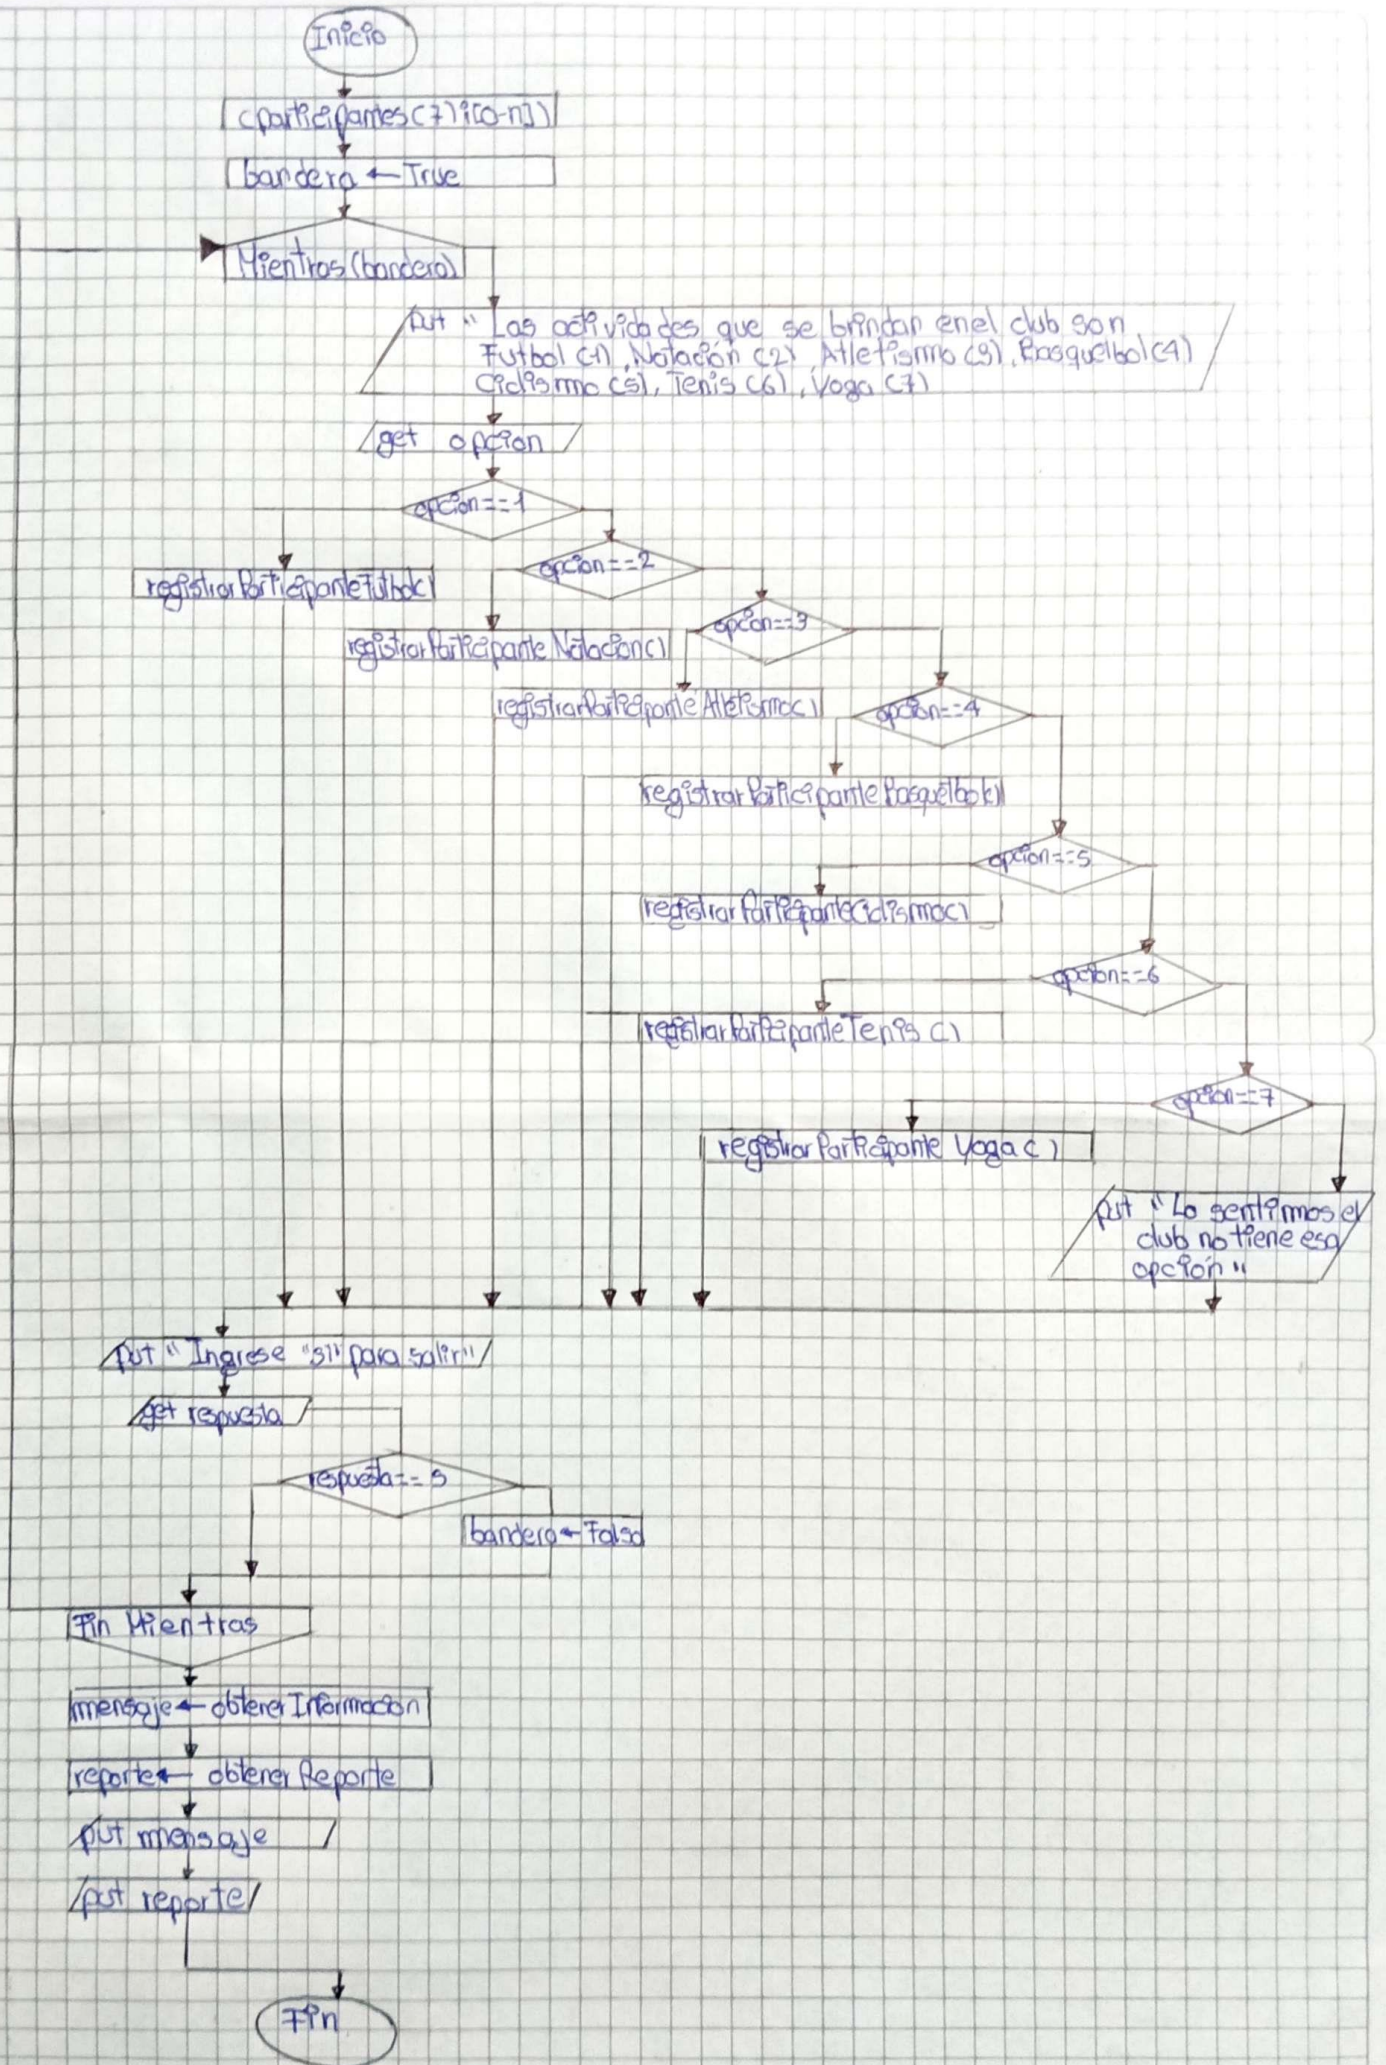 Inicio
cparticipantes(7)i[0-n])
bandera ← True
Mientras (bandera)
put " Las actividades que se brindan en el club son
Futbol (1), Natación (2), Atletismo (3), Basquetbol (4)
Ciclismo (5), Tenis (6), Yoga (7)
get opcion
opcion==1
opcion==2
registrarParticipanteFutbol()
opcion==3
registrarParticipante Natacion()
registrarParticipante Atletismo()
opcion==4
registrarParticipante Basquetbol()
opcion==5
registrarParticipanteCiclismo()
opcion==6
registrarParticipanteTenis ()
opcion==7
registrarParticipante Yoga ()
put "Lo sentimos el
club no tiene esa
opción"
put " Ingrese "si" para salir"
get respuesta
respuesta== s
bandera ← Falso
Fin Mientras
mensaje ← obtenerInformacion
reporte ← obtenerReporte
put mensaje
put reporte
Fin